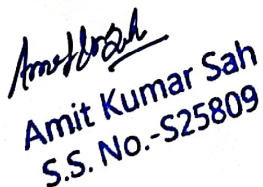 Amit Kumar Sah
S.S. No.-S25809